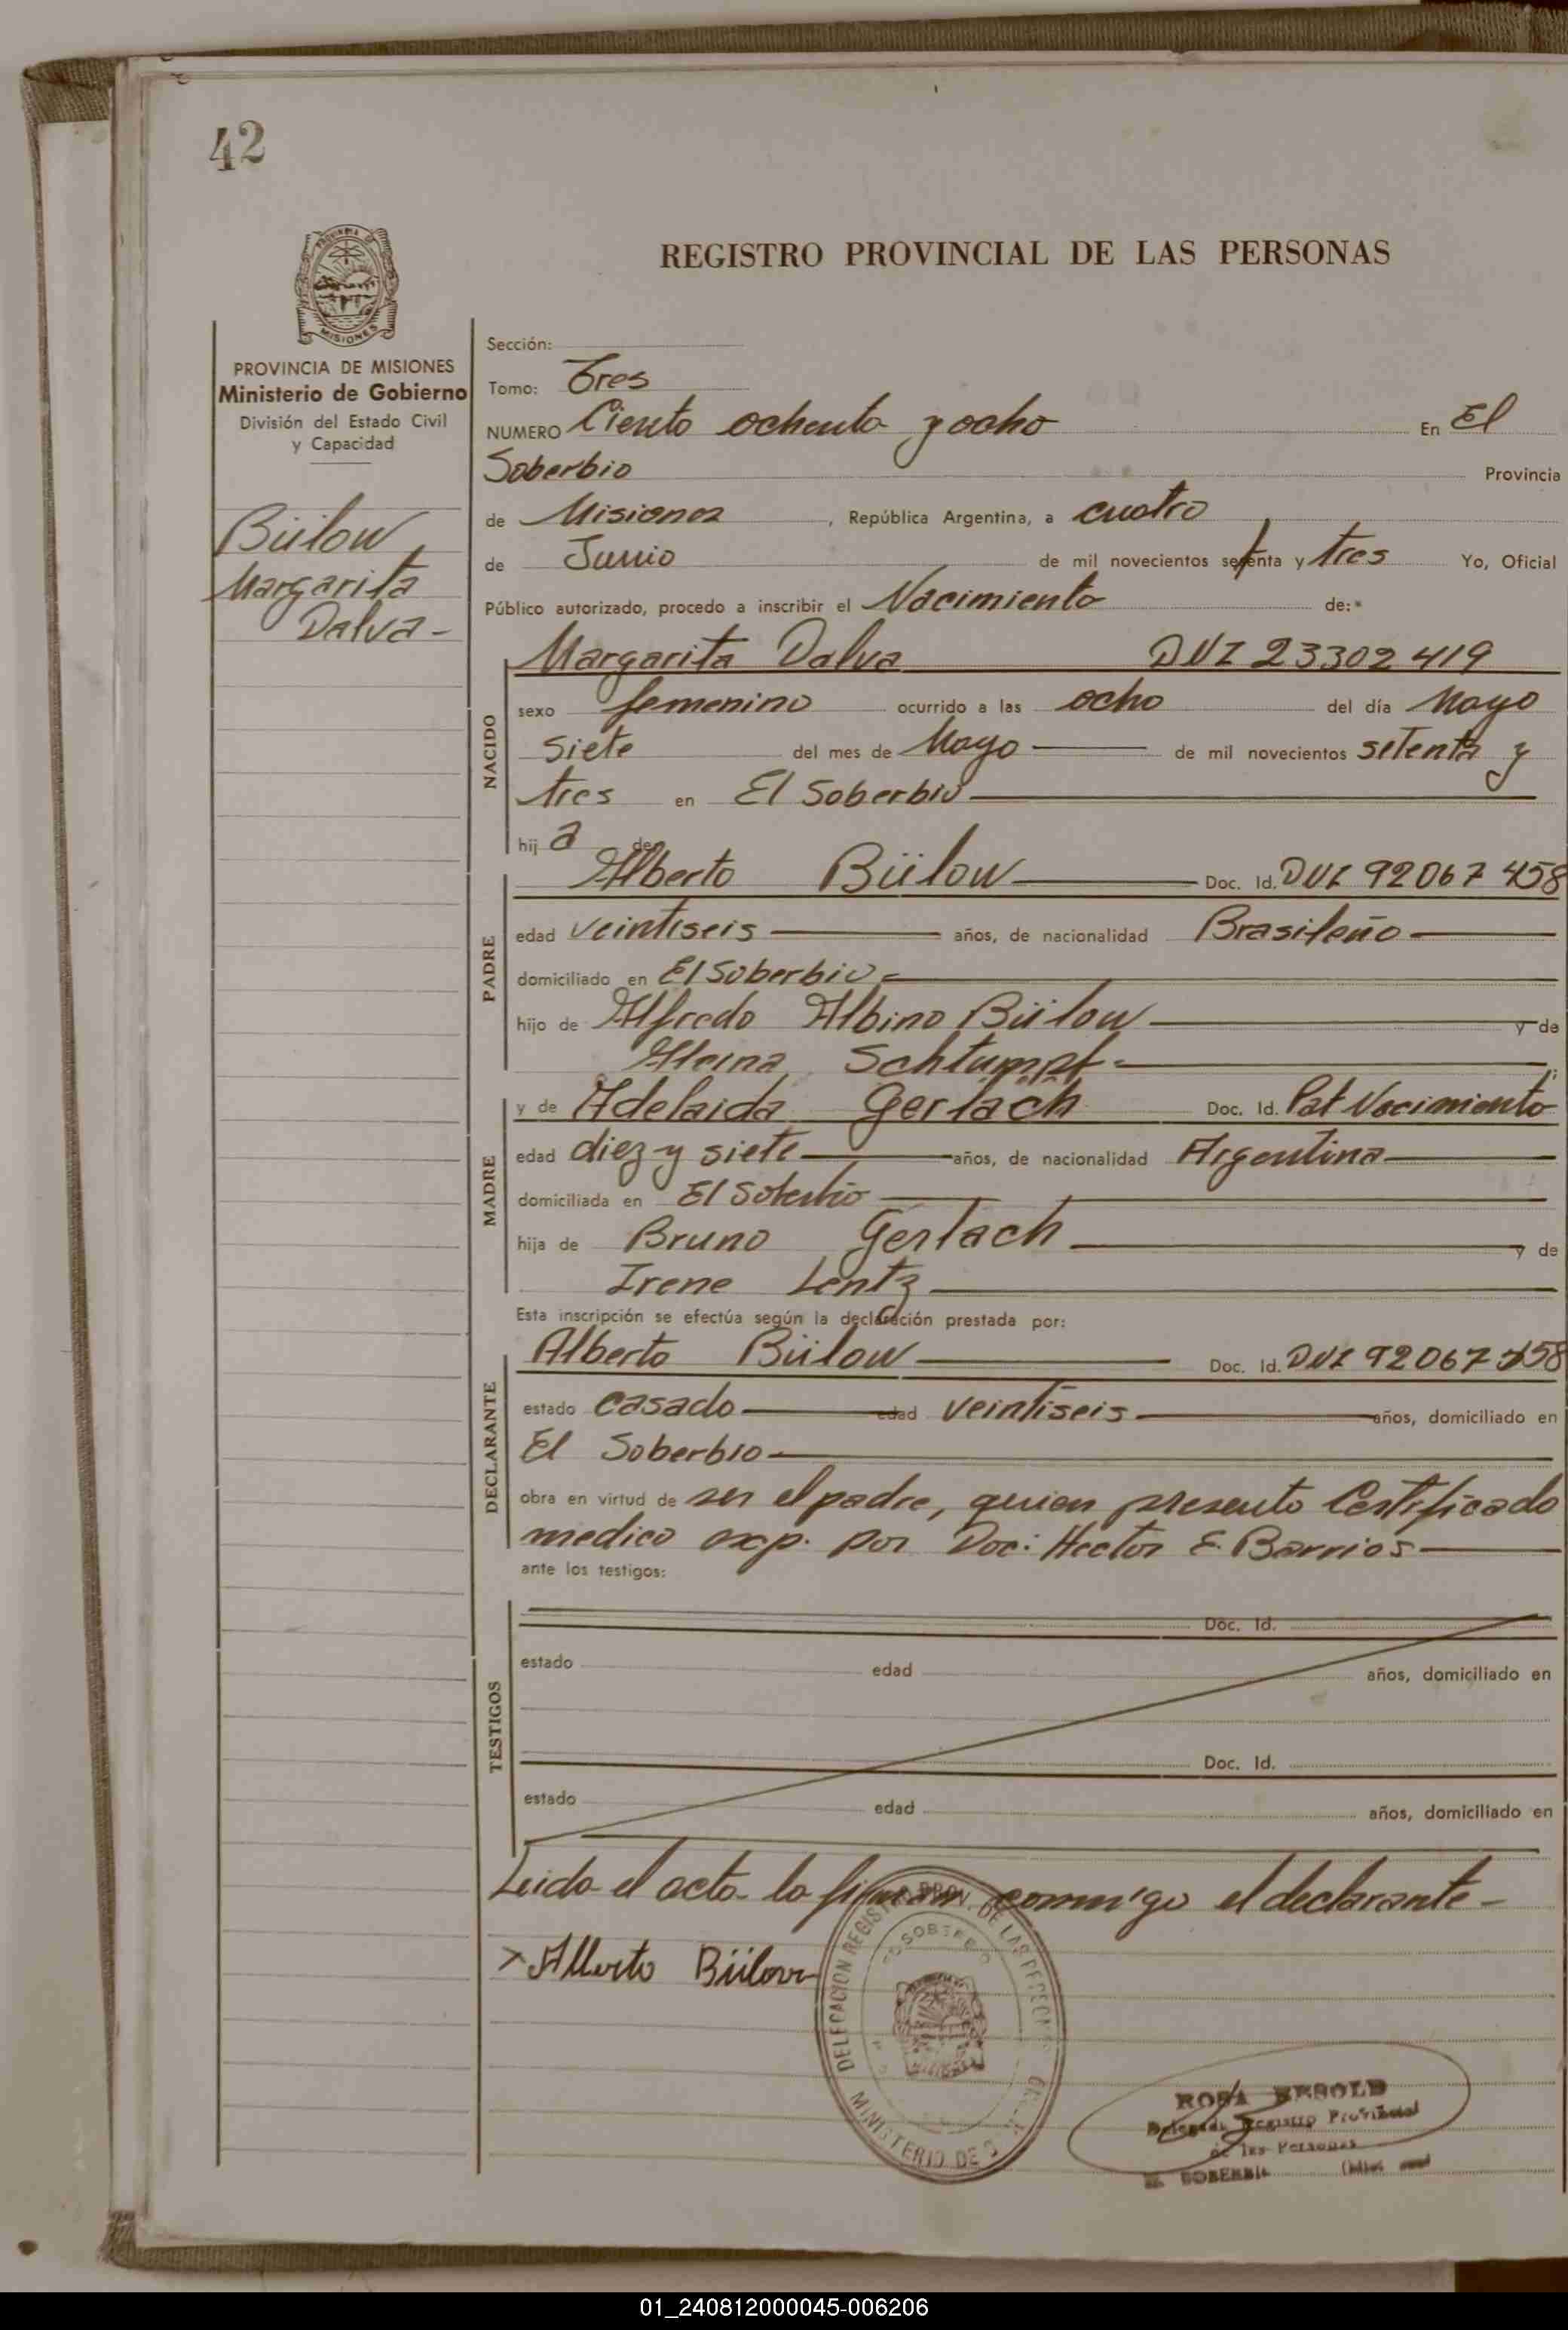 42
PROVINCIA DE MISIONES
PROVINCIA DE MISIONES
Ministerio de Gobierno
División del Estado Civil
y Capacidad
Bülow
Margarita
Dalva-
REGISTRO PROVINCIAL DE LAS PERSONAS
Sección:
Tomo: Tres
NUMERO Ciento ochenta y ocho En El
Soberbio Provincia
de Misiones, República Argentina, a cuatro
de Junio de mil novecientos setenta y tres Yo, Oficial
Público autorizado, procedo a inscribir el Nacimiento de:
NACIDO
Margarita Dalva DNI 23302419
sexo femenino ocurrido a las ocho del día Mayo
siete del mes de Mayo de mil novecientos setenta y
tres en El Soberbio
hij a de
PADRE
Alberto Bülow Doc. Id. DNI 92067458
edad veintiseis años, de nacionalidad Brasileño
domiciliado en El Soberbio
hijo de Alfredo Albino Bülow y de
Schtumpf
MADRE
y de Adelaida Gerlach Doc. Id. Pat Nacimiento
edad diez y siete años, de nacionalidad Argentina
domiciliada en El Soberbio
hija de Bruno Gerlach y de
Irene Lentz
Esta inscripción se efectúa según la declaración prestada por:
DECLARANTE
Alberto Bülow Doc. Id. DNI 92067458
estado casado edad veintiseis años, domiciliado en
El Soberbio
obra en virtud de ser el padre, quien presento Certificado
medico exp. por Doc: Hector E. Barrios
ante los testigos:
TESTIGOS
Doc. Id.
estado edad años, domiciliado en
Doc. Id.
estado edad años, domiciliado en
Leida el acta la firman conmigo el declarante-
Alberto Bülow
DELEGACION REGISTRO PROV. DE LAS PERSONAS
EL SOBERBIO
MINISTERIO DE
ROSA
Delegada Registro Provincial
de las Personas
EL SOBERBIO
01_240812000045-006206